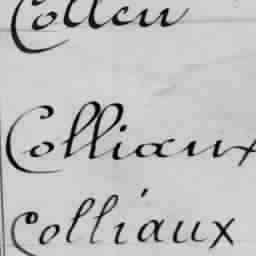 Collen
Colliaux
Colliaux